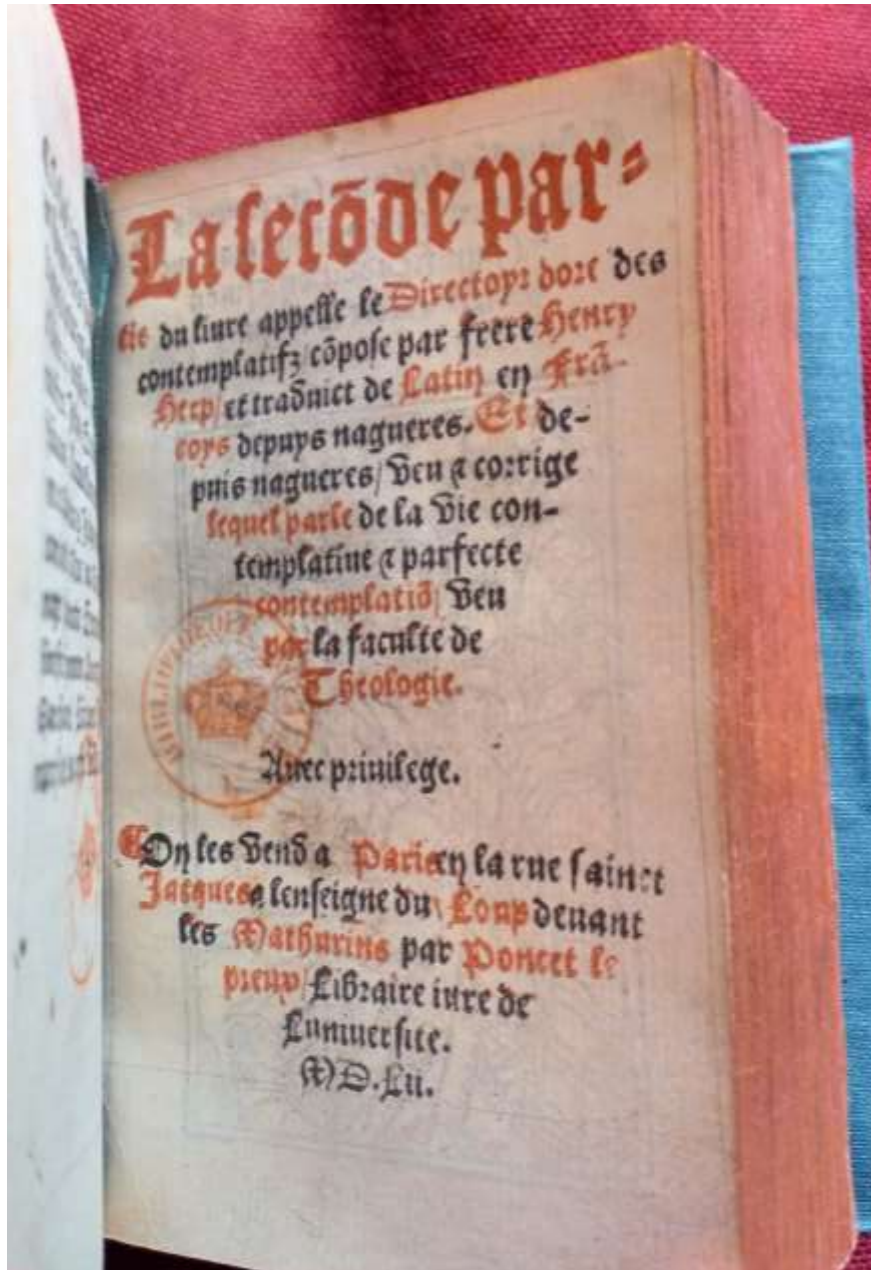 La secõde par-
tie du liure appelle le Directoyr dore des
contemplatifz cõpose par frere Henry
Herp/ et traduict de Latin en Frã-
coys depuys nagueres. Et de-
puis nagueres/ veu & corrige
lequel parle de la vie con-
templatiue & parfecte
contemplatiõ/ veu
par la faculte de
Theologie.
Auec priuilege.
On les vend a Paris en la rue sainct
Jacques a lenseigne du Loup deuant
les Mathurins par Poncet le
preux/ Libraire iure de
Luniuersite.
M.D.Lii.